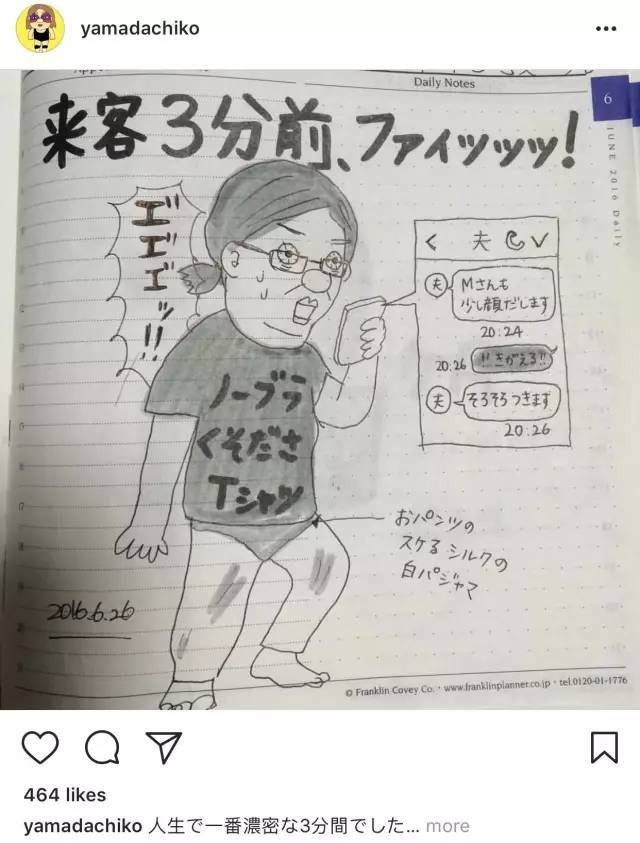 yamadachiko
Daily Notes
6
JUNE 2016 Daily
来客3分前、ファイッッッ!
エ゛エ゛エ゛ッ!!
< 夫
夫 Mさんも
少し顔だします
20:24
20:26 !!きがえろ!!
夫 そろそろつきます
20:26
ノーブラ
くそださ
Tシャツ
おパンツの
スケるシルクの
白パジャマ
2016.6.26
© Franklin Covey Co. · www.franklinplanner.co.jp · tel.0120-01-1776
464 likes
yamadachiko 人生で一番濃密な3分間でした... more